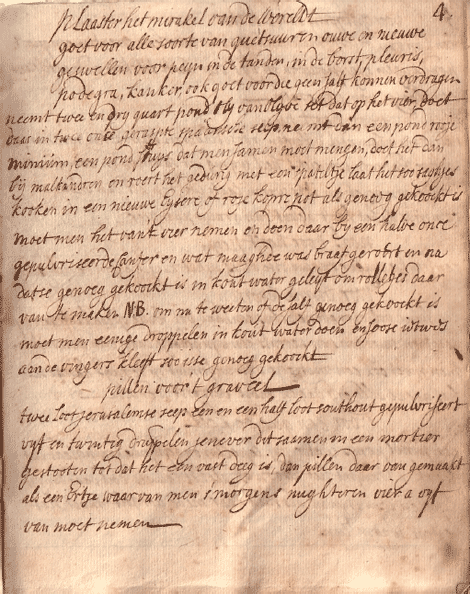 4
plaaster het mirakel van de Wereldt
goet voor alle soorte van quetsuuren ouwe en nieuwe
geswellen voor peyn in de tanden, in de borst, pleuris,
podegra, kanker, ook goet voor die geen salf konnen verdragen
neemt twee en dry quart pond oly van olyve set dat op het vier, doet
daar in twee once geraspte spaansche seepe, met dan een pond rooje
minium, een pond dat men samen moet mengen, doet het dan
by malkanderen en roert het gedurig met een spateltje laat het soo soetjes
kooken in een nieuwe ysere of roje kopre pot als genoeg gekookt is
moet men het van't vier nemen en doen daar by een halve once
gepulvriseerde Canfer en wat maaghde was braaf geroert en na
datse genoeg gekoockt is in kout water geleyt om rolletjes daar
van te maken NB. om nu te weeten of de salf genoeg gekoockt is
moet men eenige droppelen in kout water doen en soose iets
aan de vingers kleeft soo isse genoeg gekoockt
pillen voor t graveel
twee loot Jerusalemse seep een en een half loot southout gepulvriseert
vyf en twintig druppelen jenever dit saamen in een mortier
gestooten tot dat het een vaet deeg is, dan pillen daar van gemaakt
als een Ertje waar van men s'morgens nughteren vier a vyf
van moet nemen